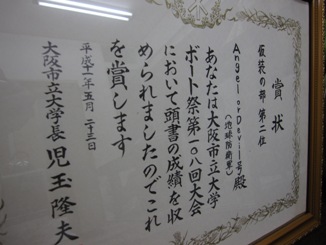 賞状
仮装の部 第二位
Angel or Devil号殿
(地球防衛軍)
あなたは大阪市立大学
ボート祭第一〇八回大会
において頭書の成績を収
められましたのでこれ
を賞します
平成十一年五月二十三日
大阪市立大学長 児玉隆夫